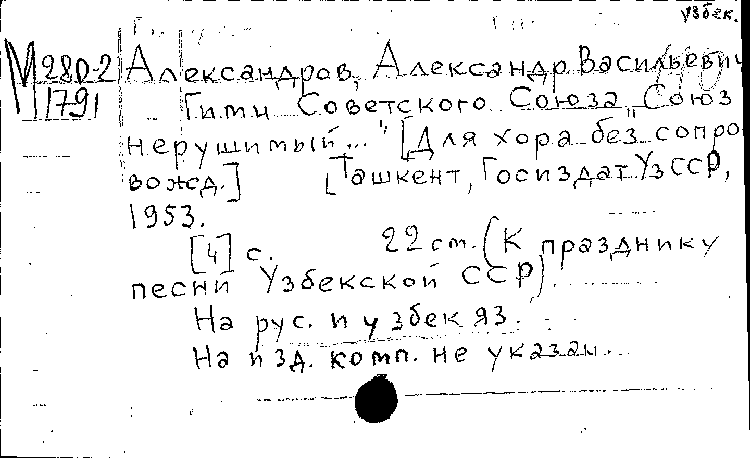 узбек.
М280-2
1791
Александров, Александр Васильевич
Гимн Советского Союза "Союз
нерушимый..." [Для хора без сопро
вожд.] [Ташкент, Госиздат УзССР,
1953.
[4] с. 22 cm. (К празднику
песни Узбекской ССР).
На рус. и узбек яз.
На изд. комп. не указан.